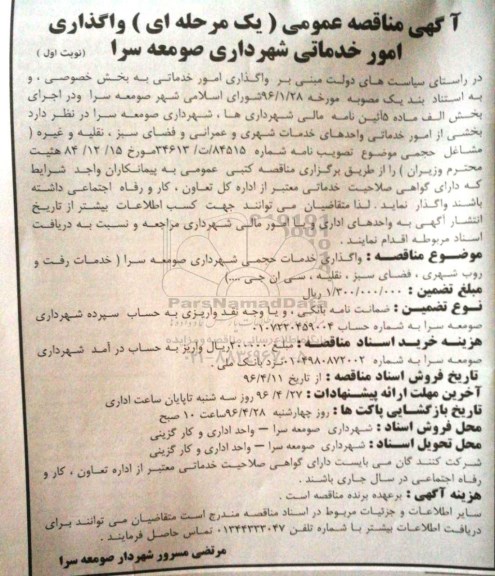 آگهی مناقصه عمومی ( یک مرحله ای ) واگذاری
امور خدماتی شهرداری صومعه سرا
(نوبت اول )
در راستای سیاست های دولت مبنی بر واگذاری امور خدماتی به بخش خصوصی ، و
به استناد بند یک مصوبه مورخه ۹۶/۱/۲۸شورای اسلامی شهر صومعه سرا ودر اجرای
بخش الف ماده ۵آئین نامه مالی شهرداری ها ، شهرداری صومعه سرا در نظر دارد
بخشی از امور خدماتی واحدهای خدمات شهری و عمرانی و فضای سبز ، نقلیه و غیره (
مشاغل حجمی موضوع تصویب نامه شماره ۸۴۵۱۵/ت/ ۳۴۶۱۳مورخ ۱۵/ ۱۲/ ۸۴ هئیت
محترم وزیران ) را از طریق برگزاری مناقصه کتبی عمومی به پیمانکاران واجد شرایط
که دارای گواهی صلاحیت خدماتی معتبر از اداره کل تعاون ، کار و رفاه اجتماعی داشته
باشند واگذار نماید . لذا متقاضیان می توانند جهت کسب اطلاعات بیشتر از تاریخ
انتشار آگهی به واحدهای اداری و امور مالی شهرداری مراجعه و نسبت به دریافت
اسناد مربوطه اقدام نمایند .
موضوع مناقصه : واگذاری خدمات حجمی شهرداری صومعه سرا ( خدمات رفت و
روب شهری ، فضای سبز ، نقلیه ، سی ان جی ...)
مبلغ تضمین : ۱/۳۰۰/۰۰۰/۰۰۰ ریال
نوع تضمین : ضمانت نامه بانکی ، و یا وجه نقد واریزی به حساب سپرده شهرداری
صومعه سرا به شماره حساب ۰۱۰۷۲۳۰۴۵۹۰۰۴
هزینه خرید اسناد مناقصه : مبلغ ریال واریز به حساب در آمد شهرداری
صومعه سرا به شماره ۰۱۰۴۹۸۰۸۷۲۰۰۲ نزد بانک ملی .
تاریخ فروش اسناد مناقصه : از تاریخ ۹۶/۴/۱۱
آخرین مهلت ارائه پیشنهادات : ۲۷/ ۴/ ۹۶ روز سه شنبه تاپایان ساعت اداری
تاریخ بازگشایی پاکت ها : روز چهارشنبه ۹۶/۴/۲۸ساعت ۱۰ صبح
محل فروش اسناد : شهرداری صومعه سرا – واحد اداری و کار گزینی
محل تحویل اسناد : شهرداری صومعه سرا – واحد اداری و کار گزینی
شرکت کنند گان می بایست دارای گواهی صلاحیت خدماتی معتبر از اداره تعاون ، کار و
رفاه اجتماعی در سال جاری باشند .
هزینه آگهی : برعهده برنده مناقصه است .
سایر اطلاعات و جزئیات مربوط در اسناد مناقصه مندرج است متقاضیان می توانند برای
دریافت اطلاعات بیشتر با شماره تلفن ۰۱۳۴۴۳۳۳۰۴۷ تماس حاصل فرمایند .
مرتضی مسرور شهردار صومعه سرا
ParsNamadData